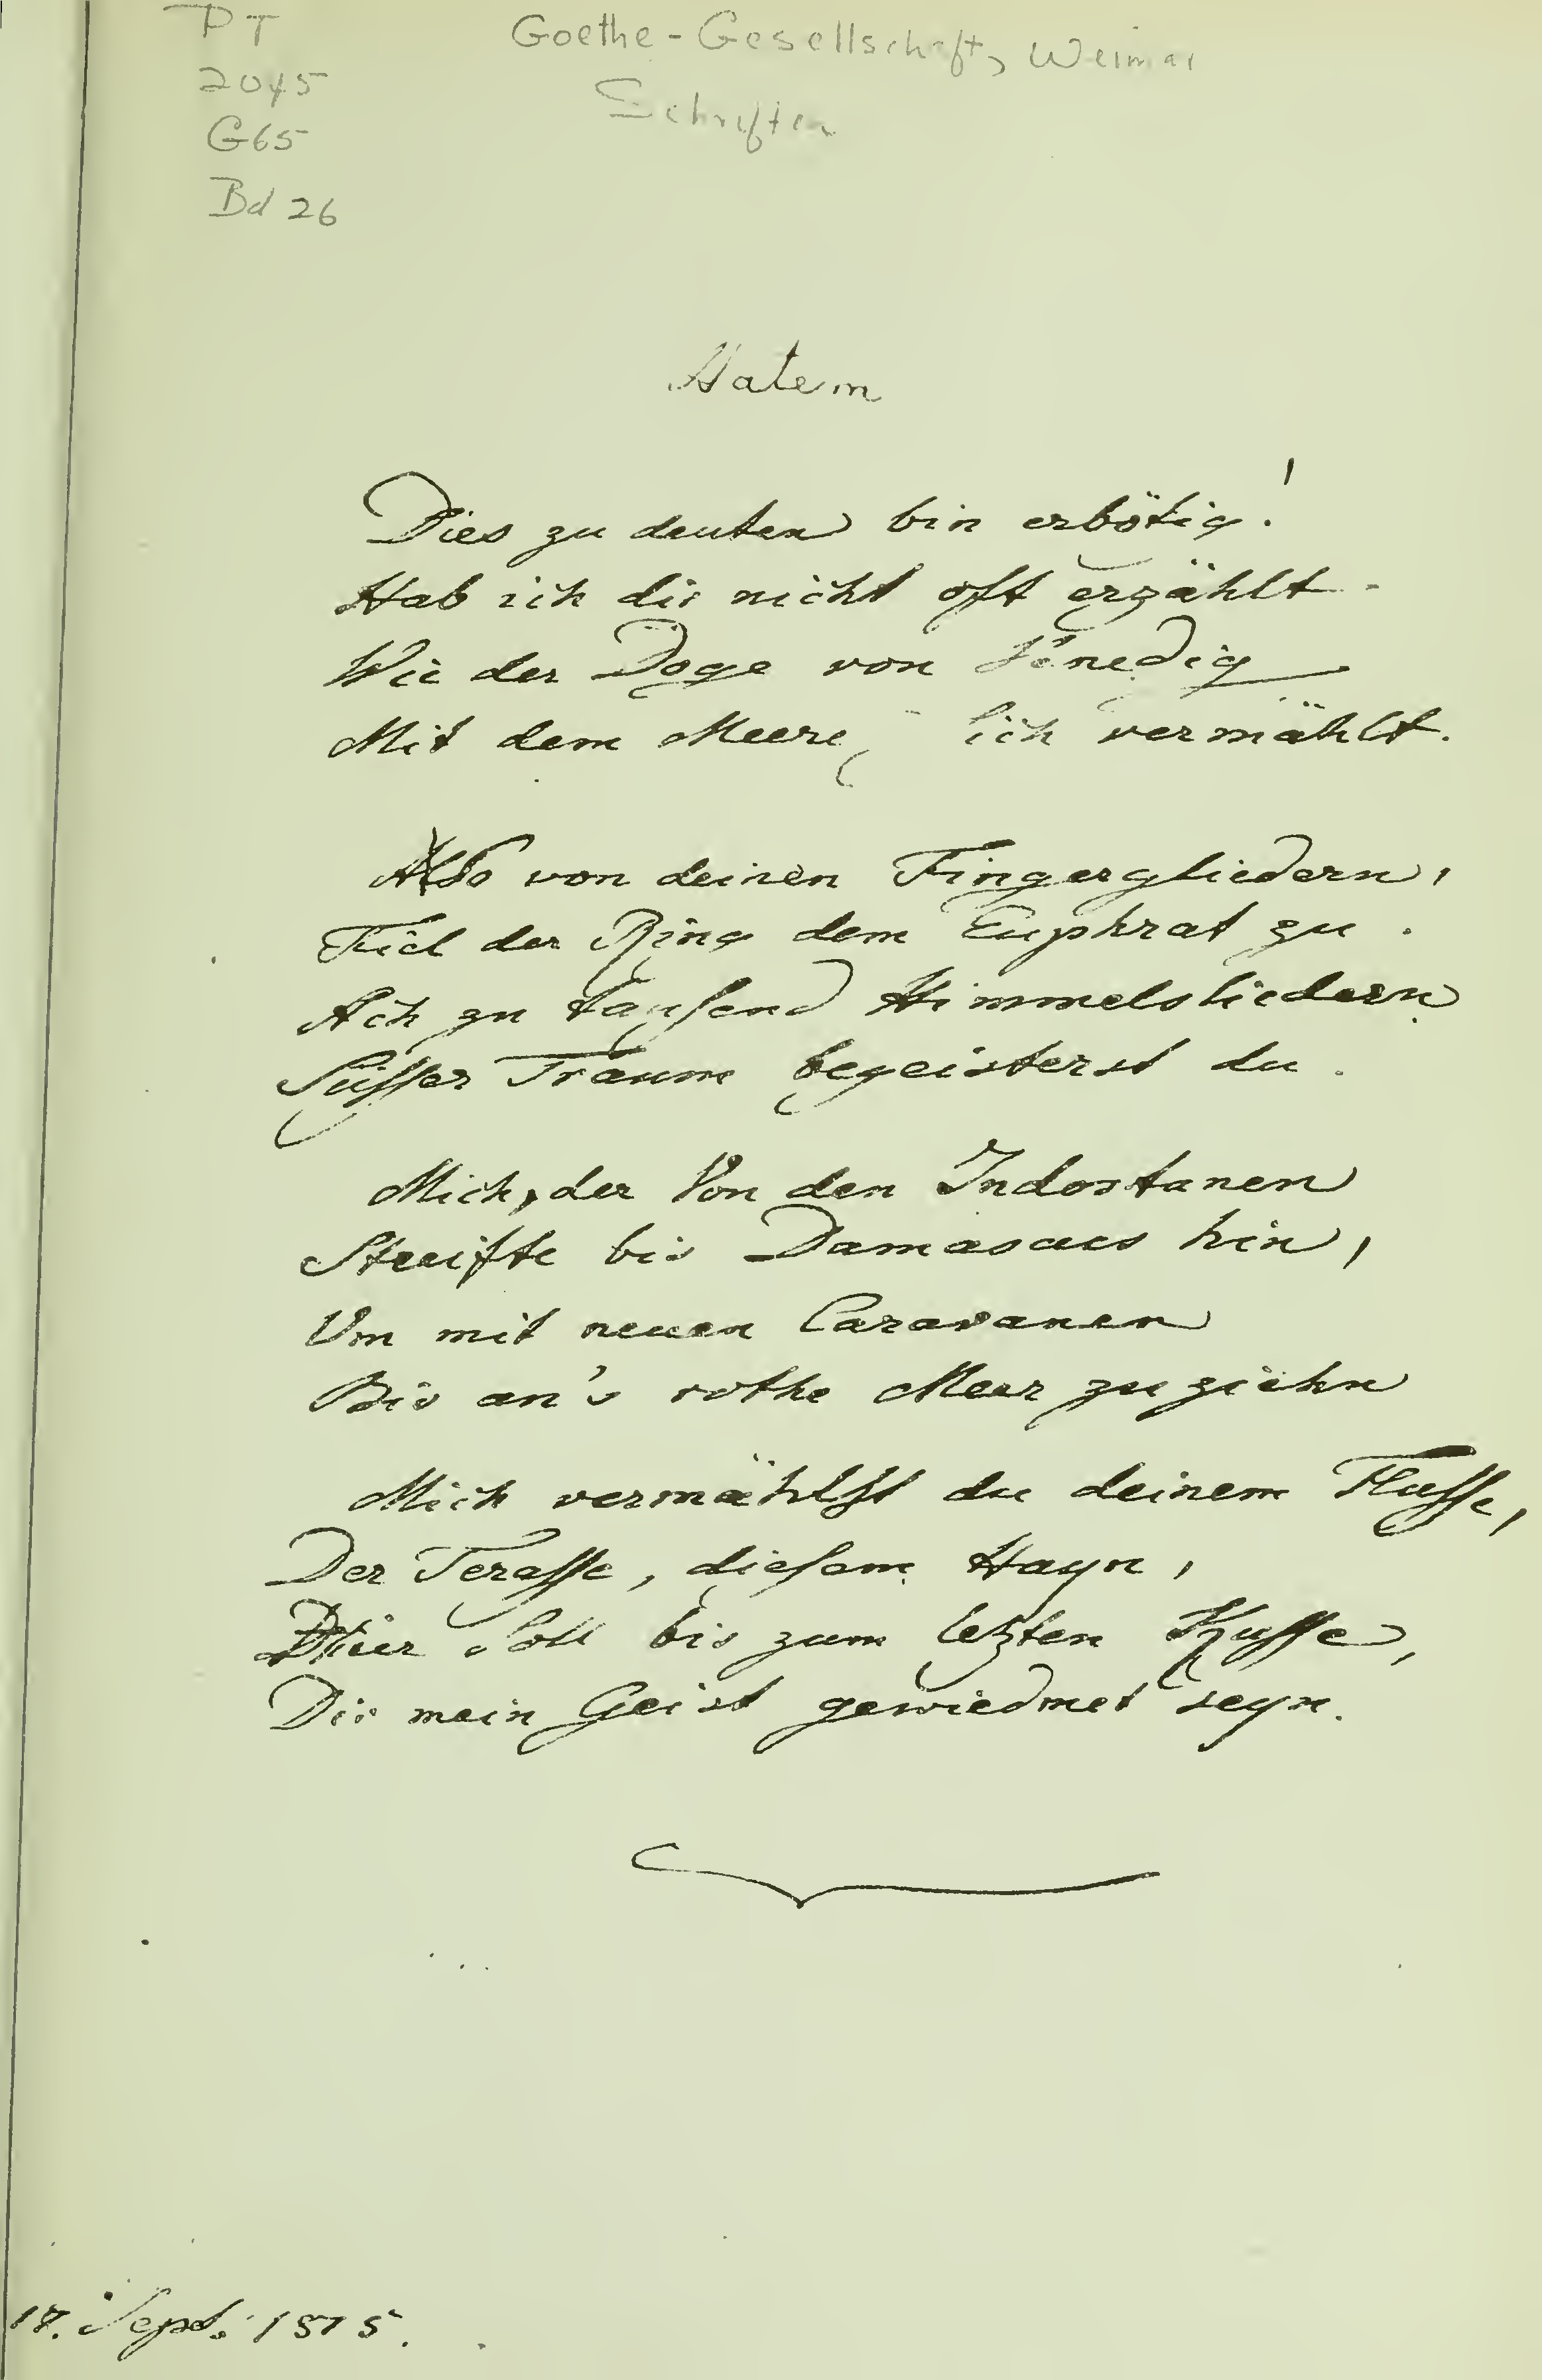 PT
2045
G65
Bd 26
Goethe-Gesellschaft, Weimar
Schriften
Hatem
Dies zu deuten bin erbötig!
Hab ich dir nicht oft erzählt
Wie der Doge von Venedig
Mit dem Meere, sich vermählt.
Also von deinen Fingergliedern,
Fiel der Ring dem Euphrat zu.
Ach zu tausend Himmelsliedern
Süsser Traum begeisterst du.
Mich, der von den Indostanen
Streifte bis Damascus hin,
Um mit neuen Caravanen
Bis an's rothe Meer zu ziehn
Mich vermählst du deinem Flusse,
Der Terasse, diesem Hayn,
Hier soll bis zum letzten Kusse,
Dir mein Geist gewiedmet seyn.
17. Sept. 1815.